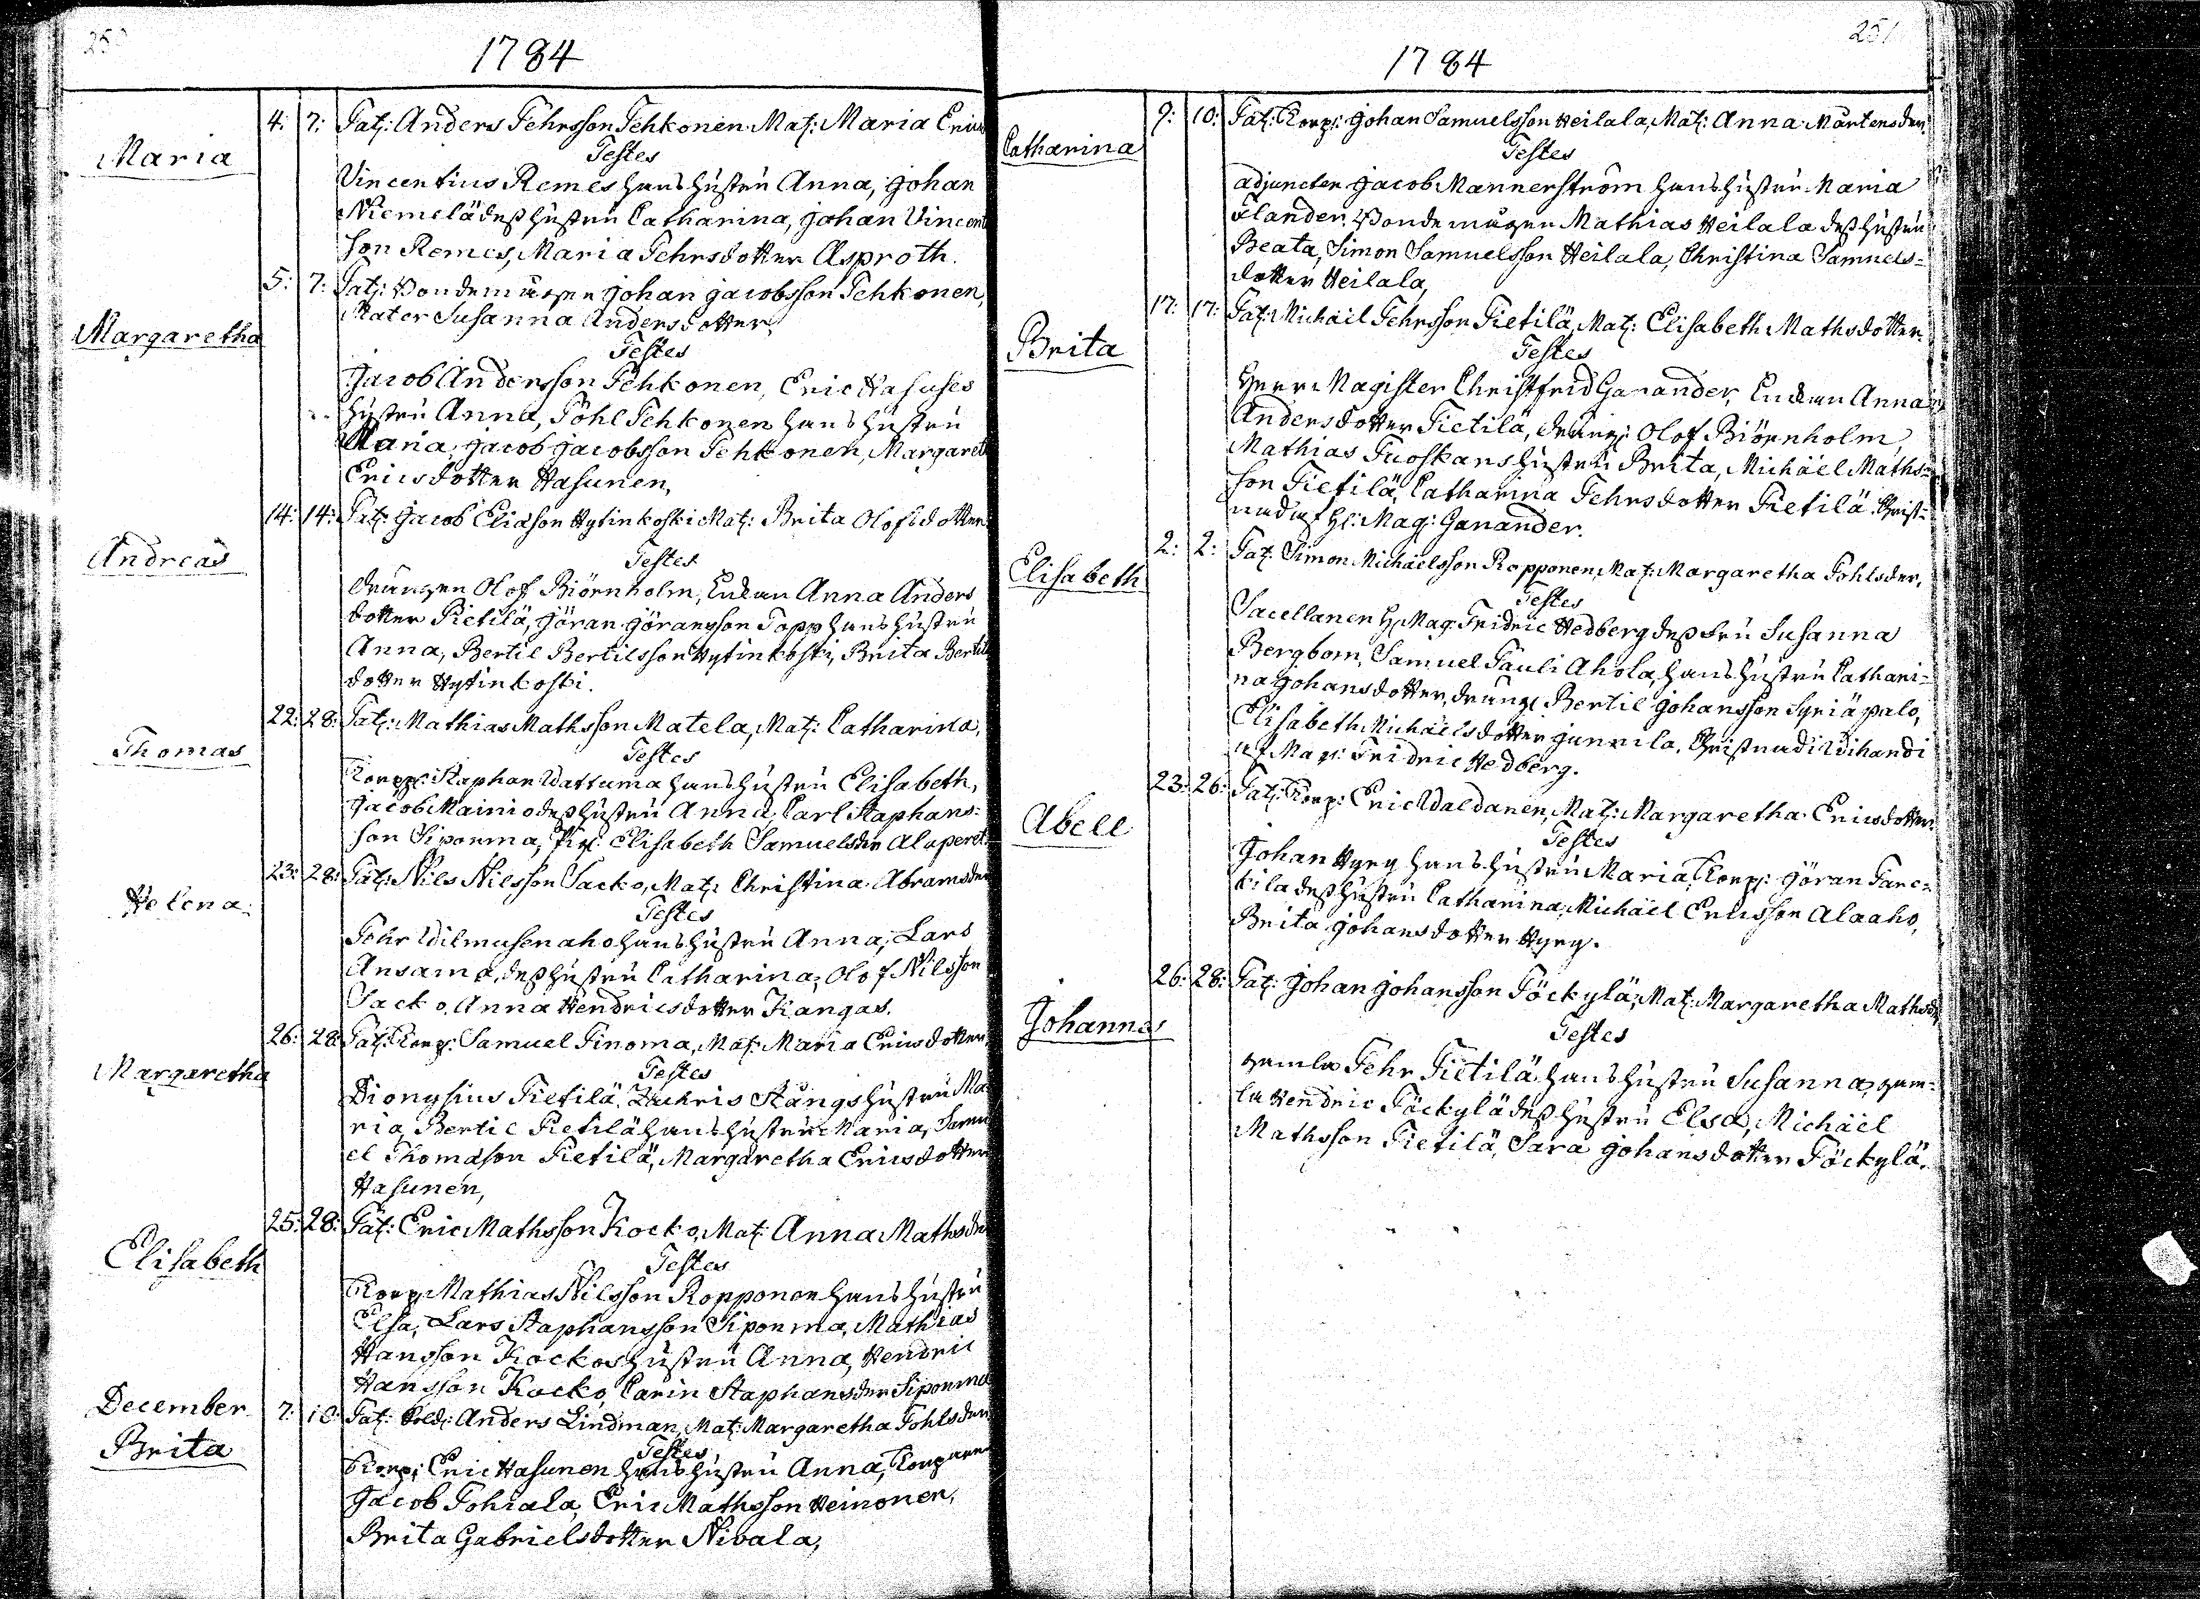 1784
Maria 4: 7: Pat: Anders Pehrsson Pehkonen Mat: Maria Erics
Testes
Vincentius Remes hans hustru Anna, Johan
Niemelä dess hustru Catharina, Johan Vincent
son Remes, Maria Pehrsdotter Asproth.
Margaretha 5: 7: Pat: Bondemågen Johan Jacobsson Pehkonen,
Mater Susanna Andersdotter,
Testes
Jacob Andersson Pehkonen, Eric Hasuses
hustru Anna, Pohl Pehkonen hans hustru
Maria, Jacob Jacobsson Pehkonen, Margaret
Ericsdotter Hasunen,
Andreas 14: 14: Pat: Jacob Eliasson Hytinkoski Mat: Brita Olofsdotter
Testes
drängen Olof Biörnholm, Enkan Anna Anders
dotter Pietilä, Göran Göransson Papp hans hustru
Anna, Bertil Bertilsson Hytinkoski, Brita Bertils
dotter Hytinkoski.
Thomas 22: 28: Pat: Mathias Mathsson Matela, Mat: Catharina,
Testes
Korpr: Staphan Wattuma hans hustru Elisabeth,
Jacob Mainio dess hustru Anna, Carl Staphans-
son Siponma, Pig: Elisabeth Samuelsdr Alaperet
Helena 23: 28: Pat: Nils Nilsson Sacko, Mat: Christina Abramsdr
Testes
Pehr Wilmusenaho hans hustru Anna, Lars
Ansama, dess hustru Catharina, Olof Nilsson
Sacko, Anna Hendricsdotter Kangas.
Margaretha 26: 28: Pat: Korp: Samuel Finoma, Mat: Maria Ericsdotter
Testes
Dionysius Pietilä, Zachris Stångs hustru Ma
ria, Bertil Pietilä hans hustru Maria, Samu
el Thomasson Pietilä, Margaretha Ericsdotter
Hasunen,
Elisabeth 25: 28: Pat: Eric Mathsson Kocko, Mat: Anna Mathsdr
Testes
Korp: Mathias Nilsson Ropponen hans hustru
Elsa, Lars Staphansson Siponma, Mathias
Hansson Kockos hustru Anna, Hendric
Hansson Kocko, Carin Staphansder Siponma
December
Brita 7: 10: Pat: Sold: Anders Lindman, Mat: Margaretha Pohlsder
Testes
Korp: Eric Hasunen hans hustru Anna,
Jacob Pohiala, Eric Mathsson Heinonen,
Brita Gabrielsdotter Nivala,
251
1784
Catharina 9: 10: Pat: Korp: Johan Samuelsson Heilala, Mat: Anna Mårtensder,
Testes
adjuncten Jacob Mannerström hans hustru Maria
Elander, Bondemågen Mathias Heilala dess hustru
Beata, Simon Samuelsson Heilala, Christina Samuels-
dotter Heilala,
Brita 17: 17: Pat: Michaël Pehrsson Pietilä, Mat: Elisabeth Mathsdotter.
Testes
Herr Magister Christfrid Ganander, Enkan Anna
Andersdotter Pietilä, dräng: Olof Biörnholm,
Mathias Tuoskans hustru Brita, Michaël Maths-
son Pietilä, Catharina Pehrsdotter Pietilä. Christ-
nad af H: Mag: Ganander.
Elisabeth 2: 2: Pat: Simon Michaelsson Ropponen, Mat: Margaretha Pohlsder,
Testes
Sacellanen H: Mag: Fridric Hedberg dess Fru Susanna
Bergbom, Samuel Pauli Ahola, hans hustru Cathari-
na Johansdotter, dräng: Bertil Johansson Syriäpalo,
Elisabeth Michaëlsdotter Junnila, Christnad i Wihandi
af Mag: Fridric Hedberg.
Abell 23: 26: Pat: Korp: Eric Waldanen, Mat: Margaretha Ericsdotter.
Testes
Johan Hyry hans hustru Maria, Korp: Göran Tanc-
kila dess hustru Catharina, Michaël Ericsson Alaaho,
Brita Johansdotter Hyry.
Johannes 26: 28: Pat: Johan Johansson Pöckylä, Mat: Margaretha Mathsdr
Testes
gamla Pehr Pietilä hans hustru Susanna, gam-
la Hendric Pöckylä dess hustru Elsa, Michaël
Mathsson Pietilä, Sara Johansdotter Pöckylä.